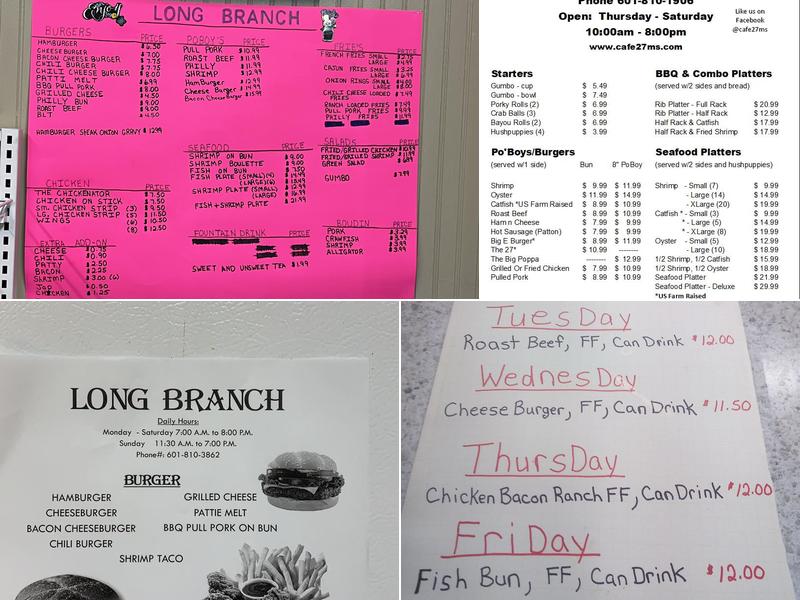 Enjoy
LONG BRANCH
BURGERS PRICE
HAMBURGER $6.50
CHEESEBURGER $7.00
BACON CHEESE BURGER $7.75
CHILI BURGER $7.75
CHILI CHEESE BURGER $8.00
PATTI MELT $6.99
BBQ PULL PORK $8.00
GRILLED CHEESE $4.50
PHILLY BUN $9.00
ROAST BEEF $9.00
BLT $4.50
HAMBURGER STEAK ONION GRAVY $12.99
CHICKEN PRICE
THE CHICKENATOR $7.50
CHICKEN ON STICK $7.50
SM. CHICKEN STRIP (3) $9.50
LG. CHICKEN STRIP (5) $11.50
WINGS (6) $10.50
(8) $12.50
EXTRA ADD-ON
CHEESE $0.75
CHILI $0.90
PATTY $2.50
BACON $2.25
SHRIMP $3.00 (6)
Jap $0.50
CHICKEN $1.25
POBOY'S PRICE
PULL PORK $10.99
ROAST BEEF $11.99
PHILLY $11.99
SHRIMP $12.99
HamBurger $12.99
Cheese Burger $14.99
Bacon Cheese Burger $15.99
SEAFOOD PRICE
SHRIMP ON BUN $9.00
SHRIMP BOULETTE $9.00
FISH ON BUN $7.50
FISH PLATE (SMALL)(4) $14.49
(LARGE)(6) $15.49
SHRIMP PLATE (SMALL) $12.99
(LARGE) $16.99
FISH + SHRIMP PLATE $21.99
FOUNTAIN DRINK PRICE
SWEET AND UNSWEET TEA $1.99
FRIE'S PRICE
FRENCH FRIES SMALL
LARGE $4.99
CAJUN FRIES SMALL $3.25
LARGE
ONION RINGS SMALL
LARGE $8.00
CHILI CHEESE LOADED FRIES $7.49
RANCH LOADED FRIES $7.49
PULL PORK FRIES $9.99
PHILLY FRIES $11.99
SALADS PRICE
FRIED/GRILLED CHICKEN $10.99
FRIED/GRILLED SHRIMP $11.99
GREEN SALAD $6.89
GUMBO $7.99
BOUDIN PRICE
PORK $3.29
CRAWFISH $3.99
SHRIMP $3.99
ALLIGATOR $3.99
Phone 601-810-1906
Open: Thursday - Saturday
10:00am - 8:00pm
www.cafe27ms.com
Like us on
Facebook
@cafe27ms
Starters
Gumbo - cup $ 5.49
Gumbo - bowl $ 7.49
Porky Rolls (2) $ 6.99
Crab Balls (3) $ 6.99
Bayou Rolls (2) $ 6.99
Hushpuppies (4) $ 3.99
BBQ & Combo Platters
(served w/2 sides and bread)
Rib Platter - Full Rack $ 20.99
Rib Platter - Half Rack $ 12.99
Half Rack & Catfish $ 17.99
Half Rack & Fried Shrimp $ 17.99
Po'Boys/Burgers
(served w/1 side) Bun 8" PoBoy
Shrimp $ 9.99 $ 11.99
Oyster $ 11.99 $ 14.99
Catfish *US Farm Raised $ 7.99 $ 9.99
Roast Beef $ 8.99 $ 10.99
Ham n Cheese $ 7.99 $ 9.99
Hot Sausage (Patton) $ 7.99 $ 9.99
Big E Burger* $ 8.99 $ 11.99
The 27* $ 10.99 --------
The Big Poppa -------- $ 12.99
Grilled Or Fried Chicken $ 7.99 $ 10.99
Pulled Pork $ 8.99 $ 10.99
Seafood Platters
(served w/2 sides and hushpuppies)
Shrimp - Small (7) $ 9.99
- Large (14) $ 14.99
- XLarge (20) $ 19.99
Catfish * - Small (3) $ 9.99
- Large (5) $ 14.99
- XLarge (8) $ 19.99
Oyster - Small (5) $ 12.99
- Large (10) $ 18.99
1/2 Shrimp, 1/2 Catfish $ 15.99
1/2 Shrimp, 1/2 Oyster $ 18.99
Seafood Platter $ 21.99
Seafood Platter - Deluxe $ 29.99
*US Farm Raised
LONG BRANCH
Daily Hours:
Monday - Saturday 7:00 A.M. to 8:00 P.M.
Sunday 11:30 A.M. to 7:00 P.M.
Phone#: 601-810-3862
BURGER
HAMBURGER GRILLED CHEESE
CHEESEBURGER PATTIE MELT
BACON CHEESEBURGER BBQ PULL PORK ON BUN
CHILI BURGER
SHRIMP TACO
TuesDay
Roast Beef, FF, Can Drink $12.00
WednesDay
Cheese Burger, FF, Can Drink $11.50
ThursDay
Chicken Bacon Ranch FF, Can Drink $12.00
FriDay
Fish Bun, FF, Can Drink $12.00